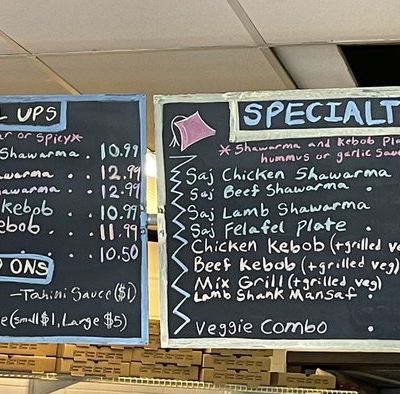 L UPS
ar or spicy*
Shawarma . 10.99
awarma . . 12.99
hawarma . . 12.99
Kebob . . 10.99
ebob . . . 11.99
. . 10.50
ONS
-Tahini Sauce ($1)
e (small $1, Large $5)
SPECIALT
* Shawarma and Kebob Pla
hummus or garlic sau
Saj Chicken Shawarma
Saj Beef Shawarma .
Saj Lamb Shawarma
Saj Felafel Plate .
Chicken Kebob (+grilled ve
Beef Kebob (+grilled veg)
Mix Grill (+grilled veg)
Lamb Shank Mansaf .
Veggie Combo .